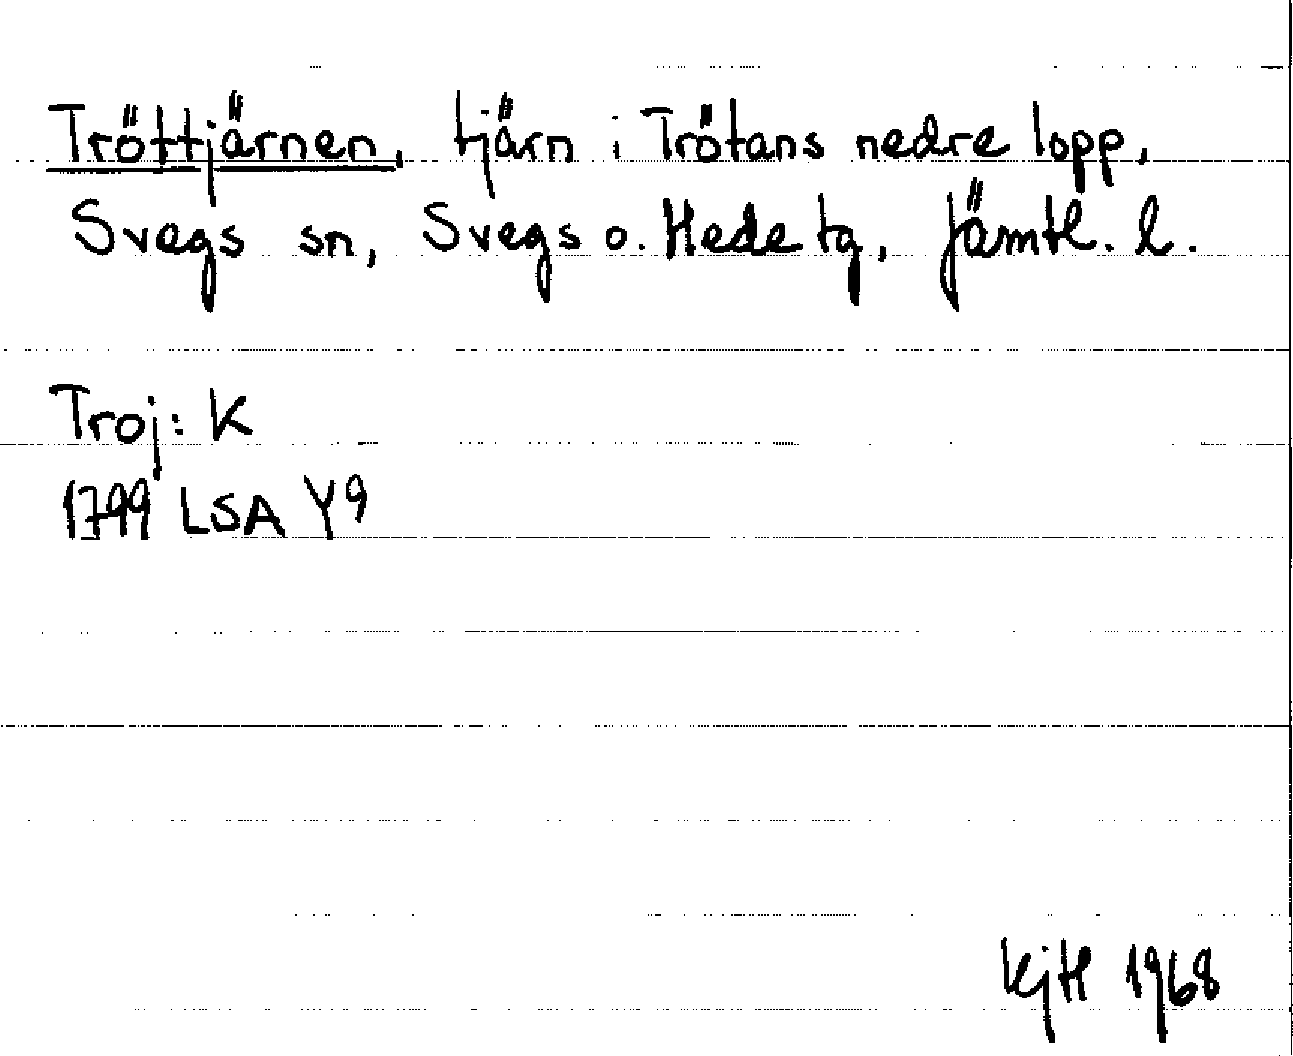 Tröttjärnen, tjärn i Trötans nedre lopp,
Svegs sn, Svegs o. Hede tg, Jämtl. l.
Troj: K
1799 LSA Y9
KjH 1968